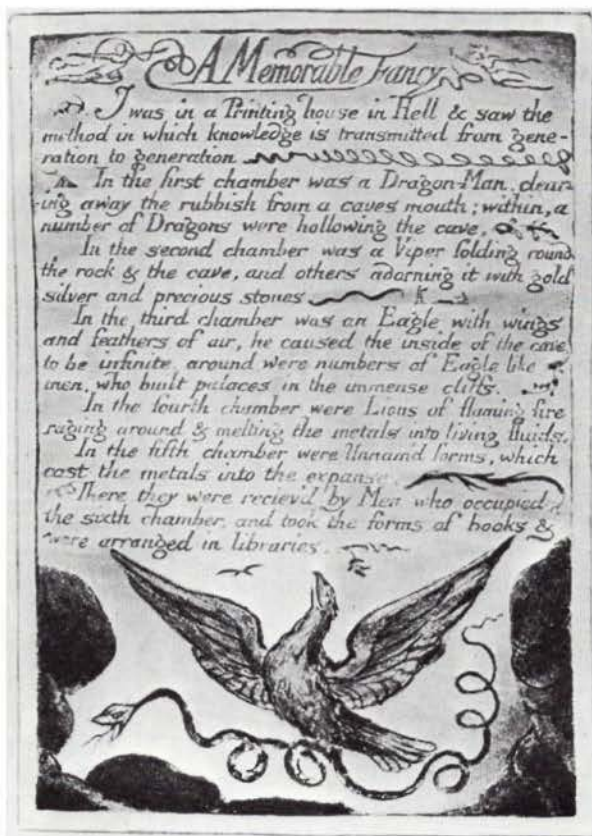 A Memorable Fancy
I was in a Printing house in Hell & saw the
method in which knowledge is transmitted from gene-
ration to generation
In the first chamber was a Dragon-Man, clear-
ing away the rubbish from a caves mouth; within, a
number of Dragons were hollowing the cave,
In the second chamber was a Viper folding round
the rock & the cave, and others adorning it with gold
silver and precious stones
In the third chamber was an Eagle with wings
and feathers of air, he caused the inside of the cave
to be infinite, around were numbers of Eagle like
men, who built palaces in the immense cliffs.
In the fourth chamber were Lions of flaming fire
raging around & melting the metals into living fluids.
In the fifth chamber were Unnam'd forms, which
cast the metals into the expanse.
There they were reciev'd by Men who occupied
the sixth chamber, and took the forms of books &
were arranged in libraries.